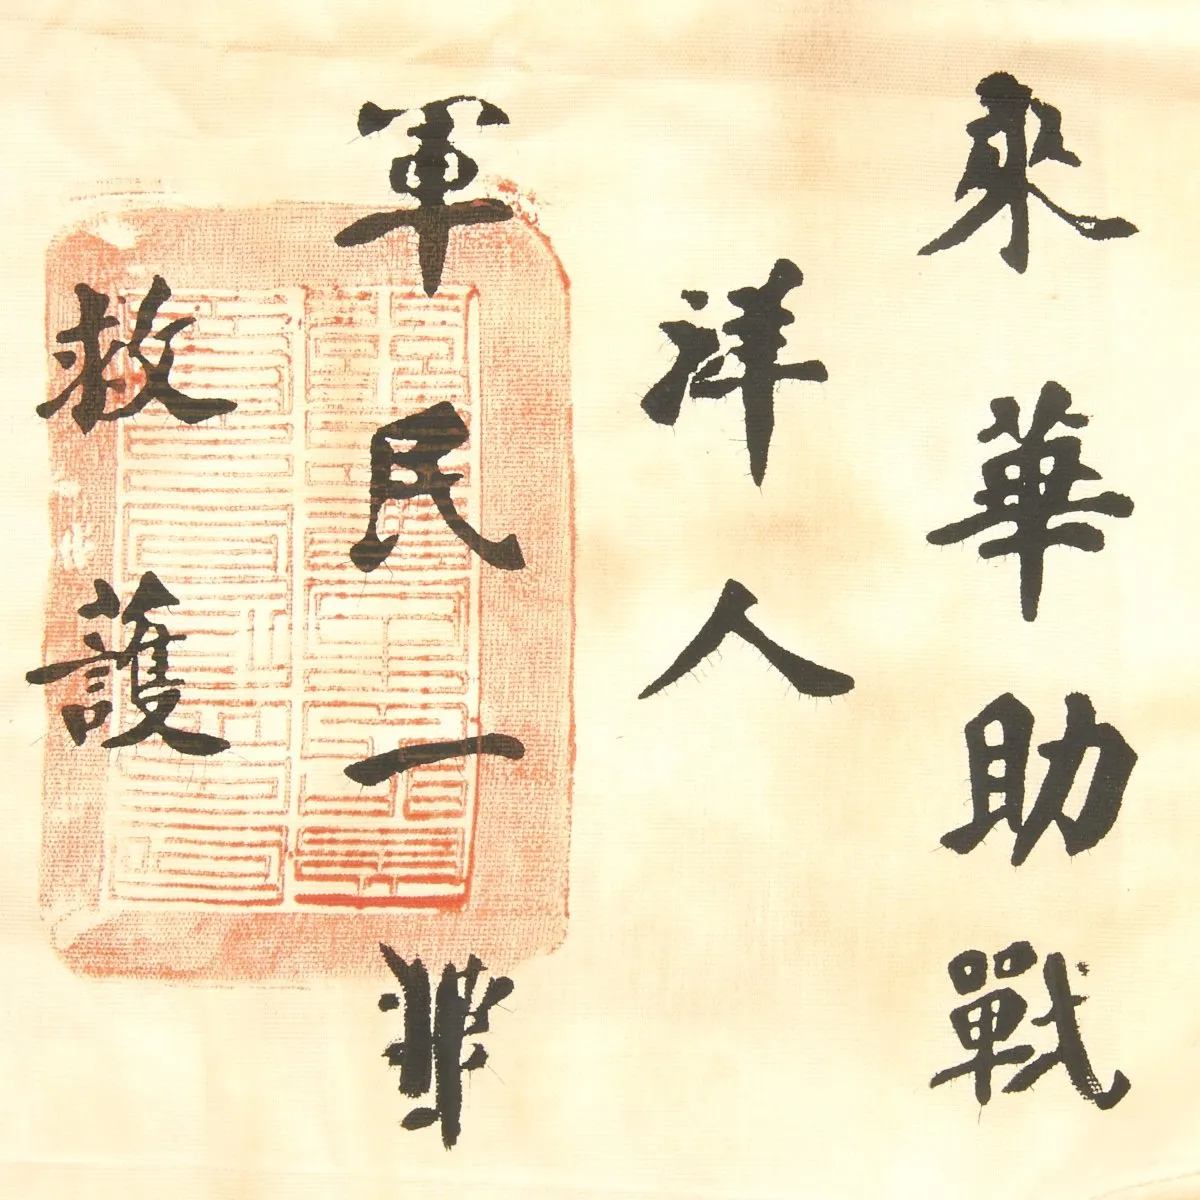 來華助戰
洋人
軍民一
救護